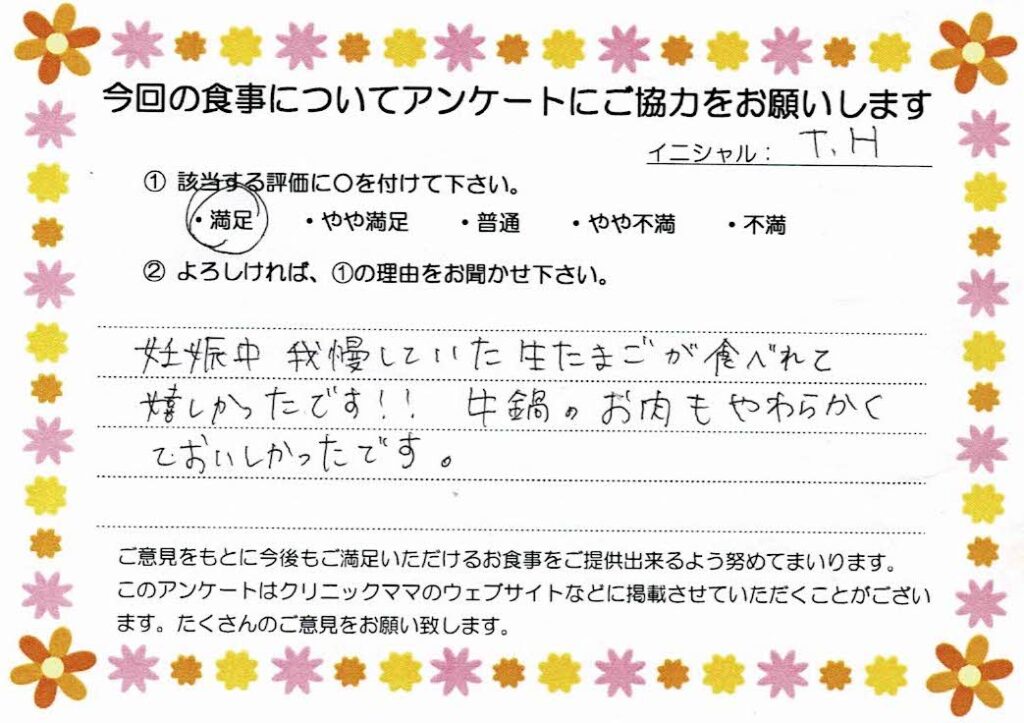 今回の食事についてアンケートにご協力をお願いします
イニシャル： T.H
① 該当する評価に〇を付けて下さい。
・満足 ・やや満足 ・普通 ・やや不満 ・不満
② よろしければ、①の理由をお聞かせ下さい。
妊娠中 我慢していた 生たまごが食べれて
嬉しかったです！！ 牛鍋のお肉もやわらかく
ておいしかったです。
ご意見をもとに今後もご満足いただけるお食事をご提供出来るよう努めてまいります。
このアンケートはクリニックママのウェブサイトなどに掲載させていただくことがござい
ます。たくさんのご意見をお願い致します。